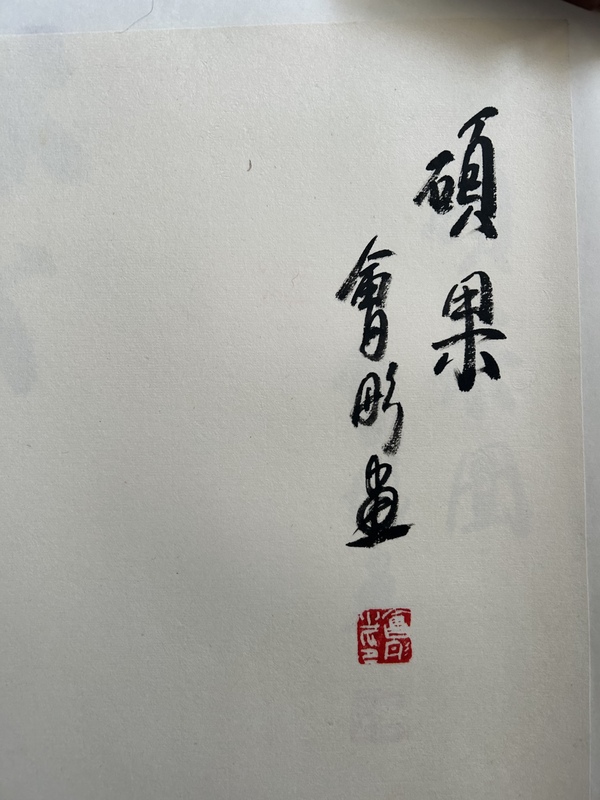 碩果
會彤畫